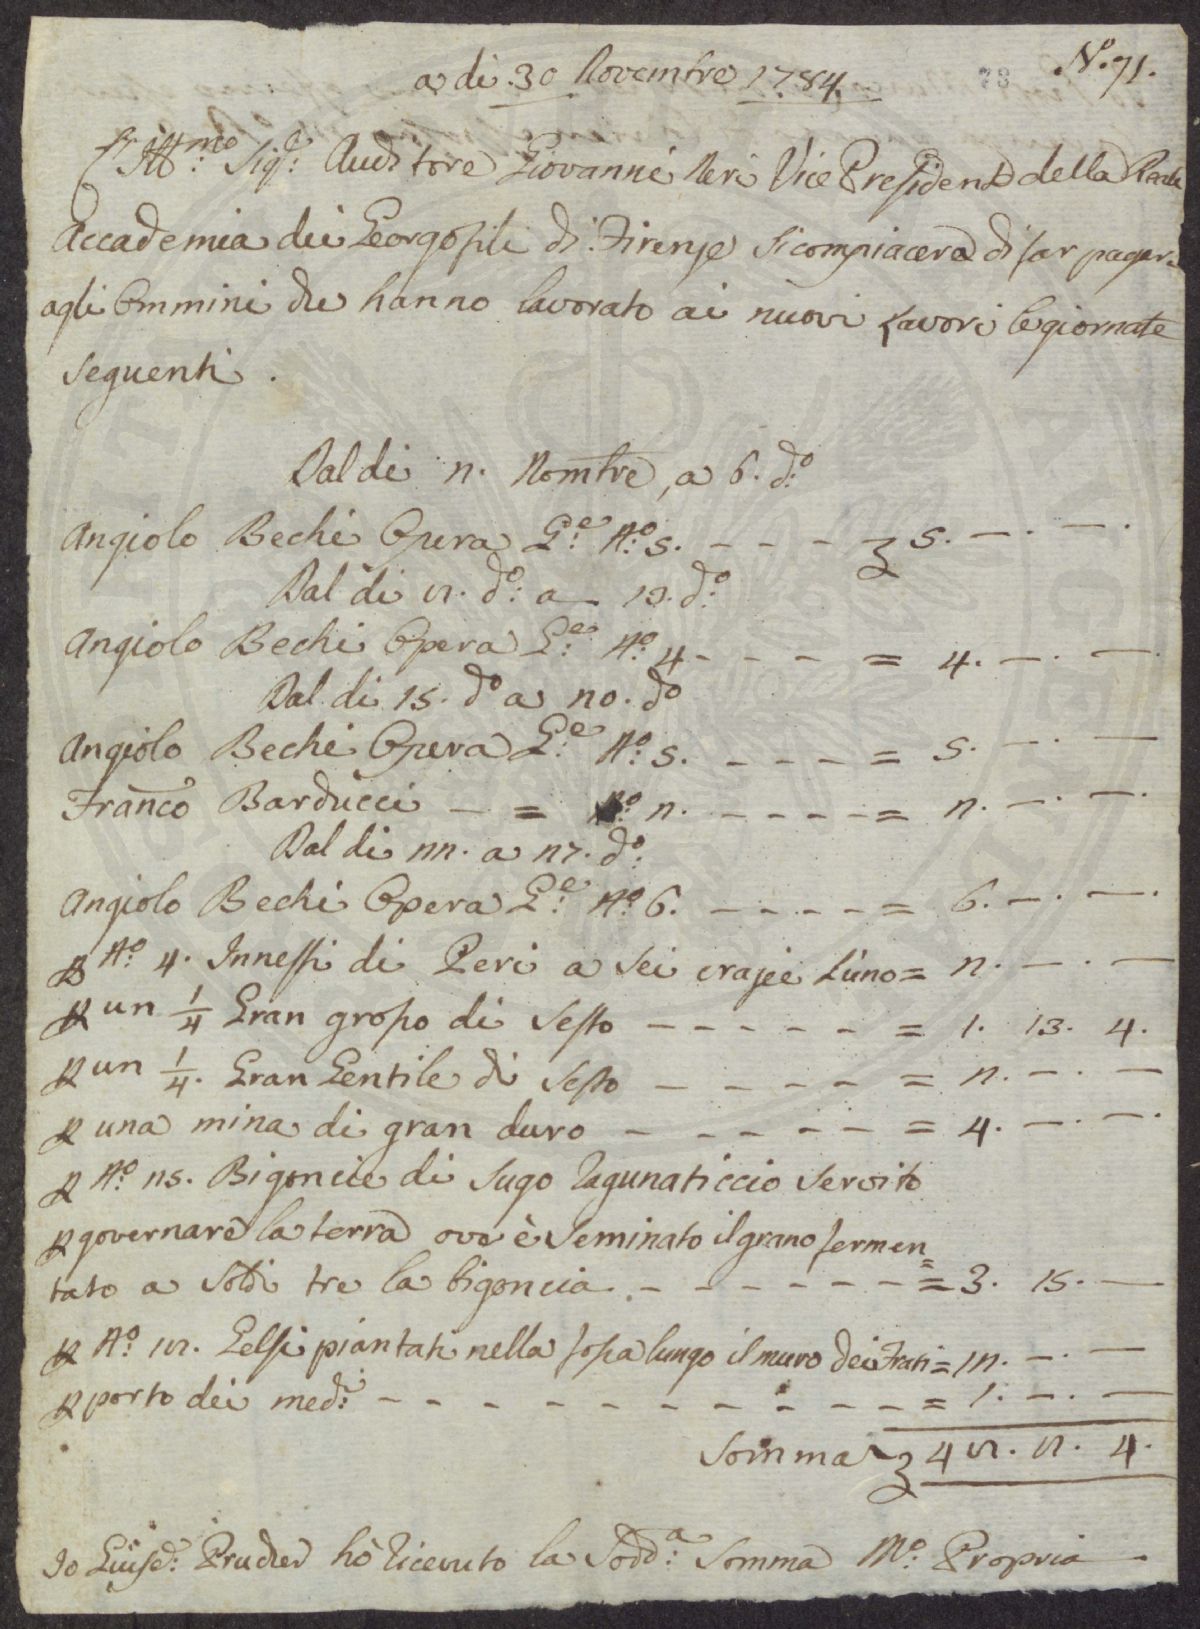 N.° 71.
a di 30 Novembre 1784.
Ill:mo Sig:e Auditore Giovanni Neri Vice Presidente della Reale
Accademia dei Georgofili di Firenze si compiacerà di far pagare
agli Ommini che hanno lavorato ai nuovi Lavori le giornate
seguenti.
Dal di 2. Nombre, a 6. d:o
Angiolo Bechi Opera G:e N:o 5. - - - - £ 5. —. —.
Dal di 8. d:o a 13. d:o
Angiolo Bechi Opera G:e N:o 4 - - - - = 4. —. —.
Dal di 15. d:o a 20. d:o
Angiolo Bechi Opera G:e N:o 5. - - - - = 5. —. —
Franco Barducci — = N:o 2. - - - - - = 2. —. —
Dal di 22. a 27. d:o
Angiolo Bechi Opera G:e N:o 6. - - - - - = 6. —. —.
p N:o 4. Innessi di Peri a sei crazie l'uno = 2. —. —
p un 1/4 Gran grosso di Sesto - - - - - - = 1. 13. 4.
p un 1/4. Gran Gentile di Sesto - - - - - = 2. —. —
p una mina di gran duro - - - - - - = 4. —. —.
p N:o 25. Bigoncie di Sugo lagunaticcio servito
p governare la terra ove è seminato il grano fermen=
tato a Soldi tre la bigoncia. - - - - - - - = 3. 15. —
p N:o 18. Gelsi piantati nella fossa lungo il muro dei Frati = 12. —. —
p porto dei med:i - - - - - - - - - - - - = 1. —. —
Somma £ 48. 8. 4.
Io Giuse: Prucher hò ricevuto la Sodd:a Somma M:o Propria —